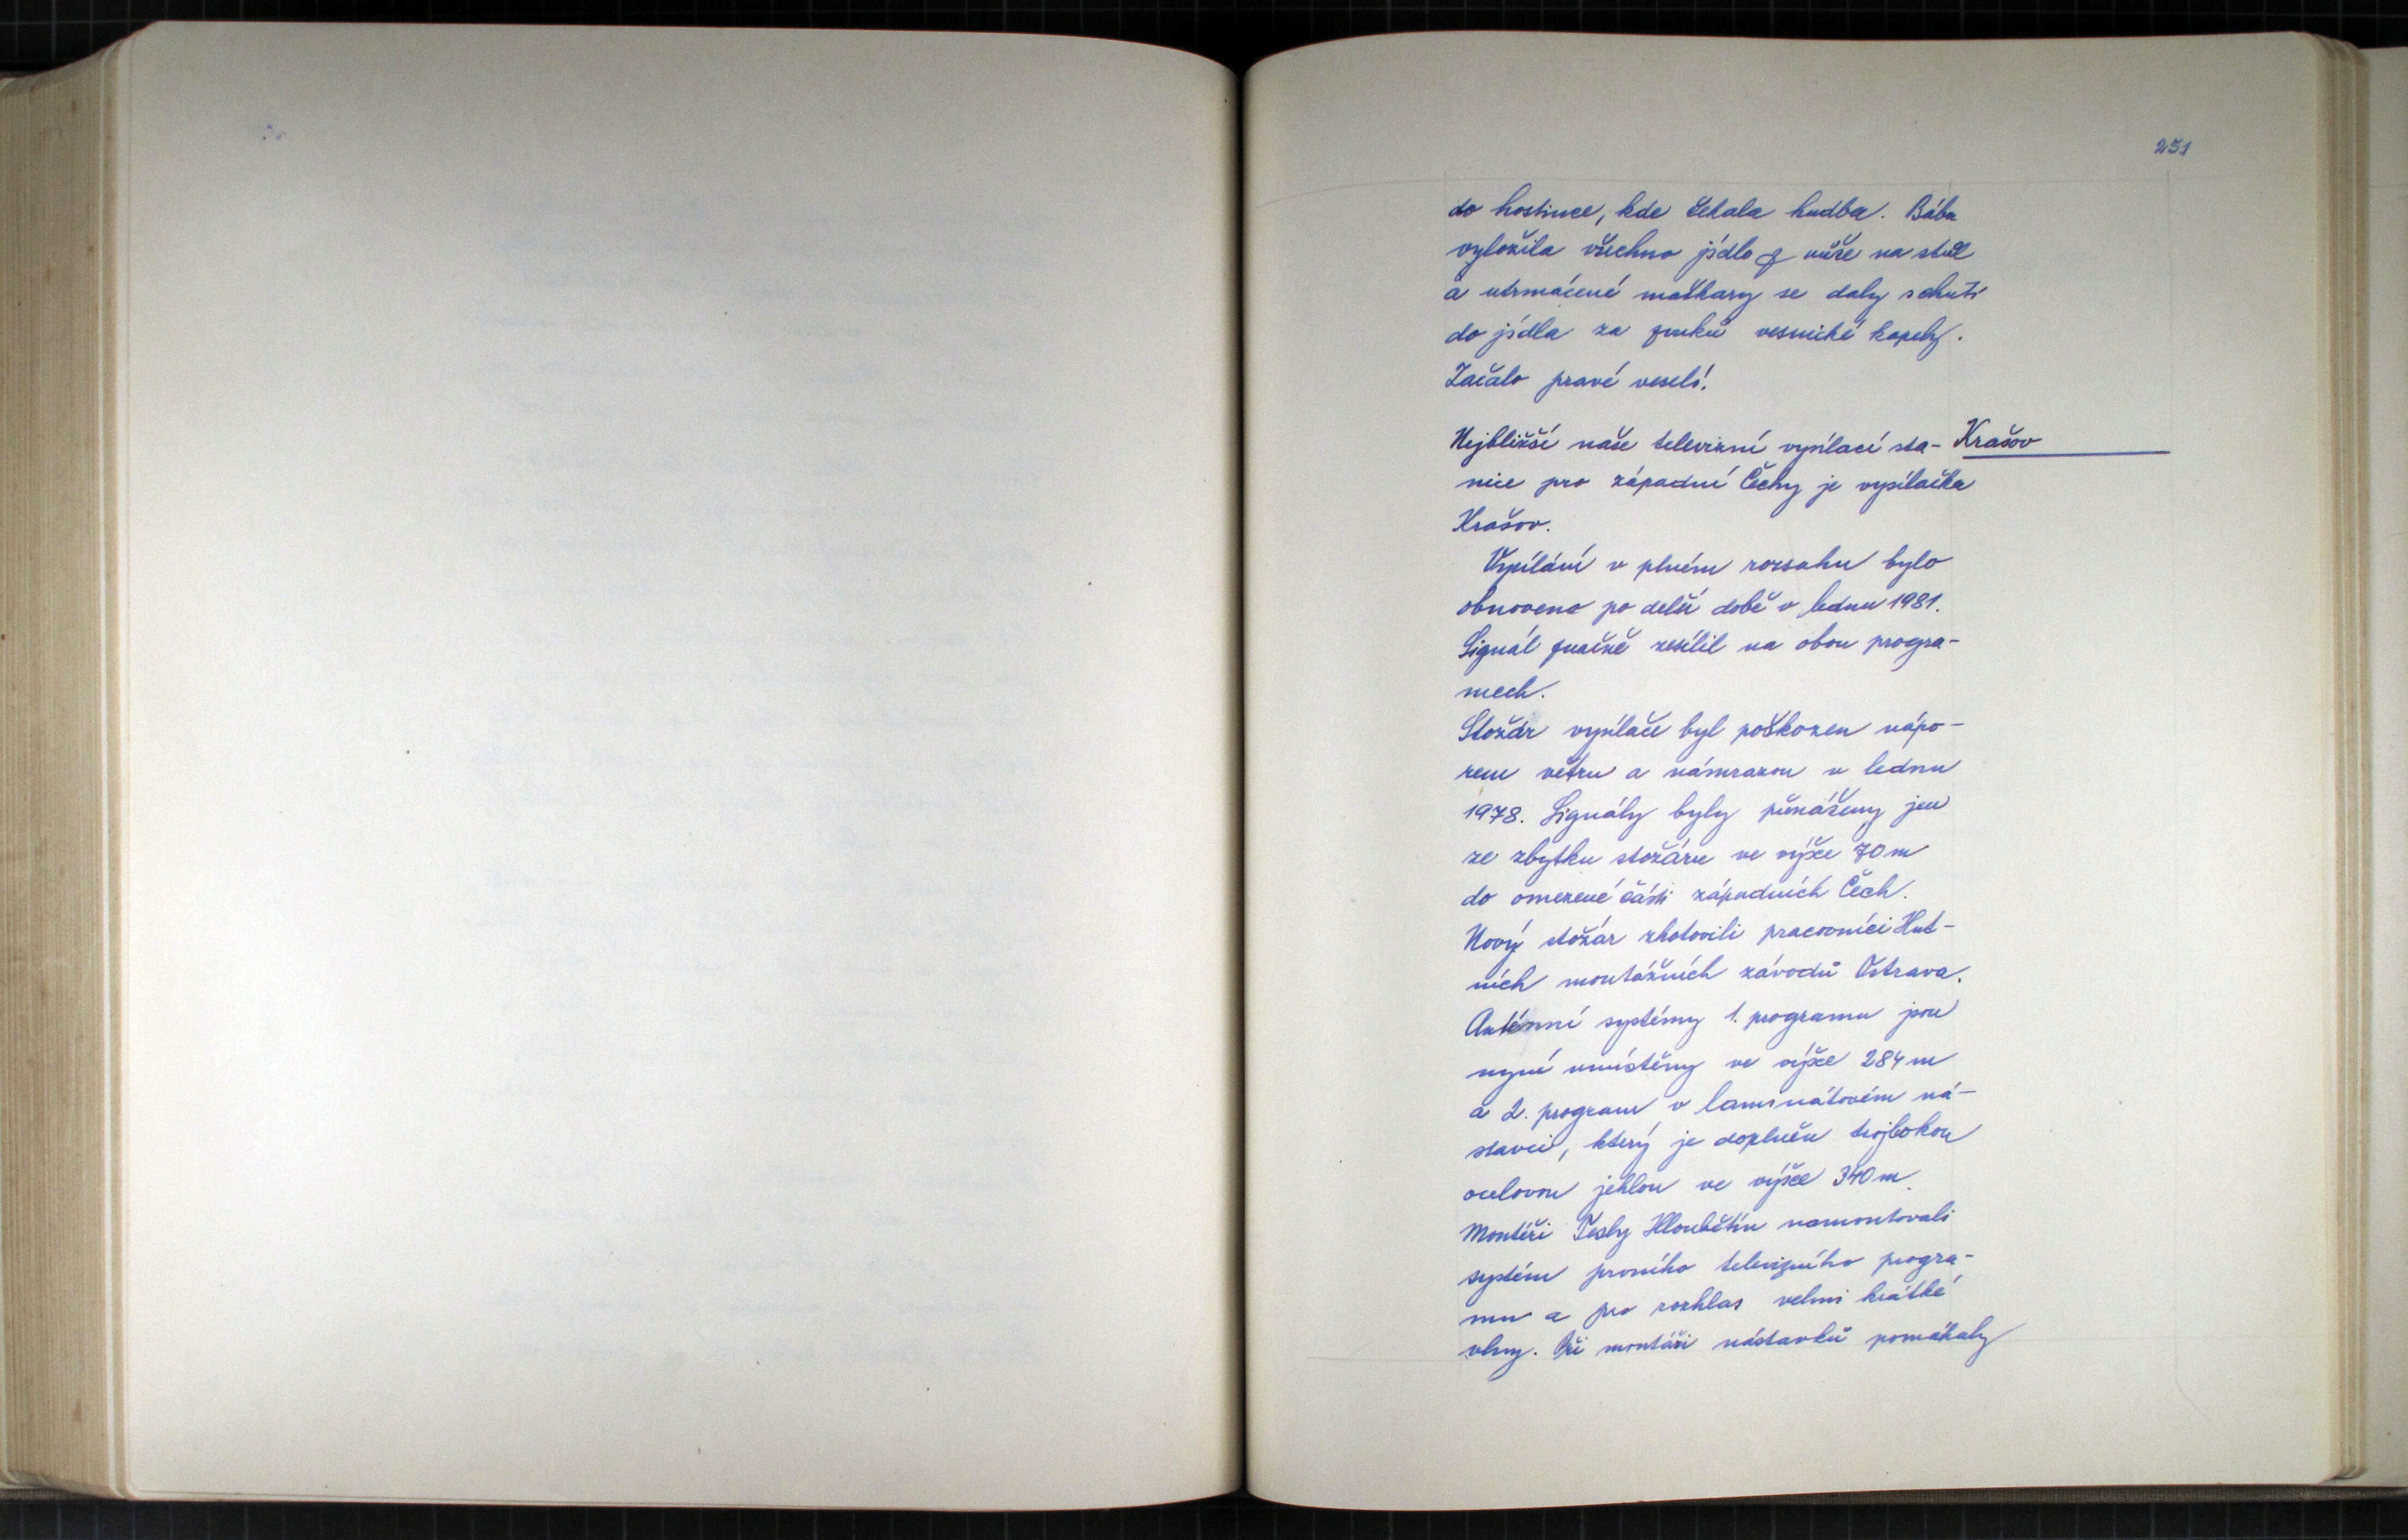 251
do hostince, kde čekala hudba. Bába
vyložila všechno jídlo z nůše na stůl
a utrmácené maškary se daly s chutí
do jídla za zvuků vesnické kapely.
Začalo pravé veselí.
Nejbližší naše televizní vysílací sta- Krašov
nice pro západní Čechy je vysílačka
Krašov.
Vysílání v plném rozsahu bylo
obnoveno po delší době v lednu 1981.
Signál značně zesílil na obou progra-
mech.
Stožár vysílače byl poškozen nápo-
rem větru a námrazou v lednu
1978. Signály byly přinášeny jen
ze zbytku stožáru ve výšce 70 m
do omezené části západních Čech.
Nový stožár zhotovili pracovníci Hut-
ních montážních závodů Ostrava.
Anténní systémy 1. programu jsou
nyní umístěny ve výšce 284 m
a 2. program v laminátovém ná-
stavci, který je doplněn trojbokou
ocelovou jehlou ve výšce 340 m.
Montéři Tesly Hloubětín namontovali
systém prvního televizního progra-
mu a pro rozhlas velmi krátké
vlny. Při montáži nástavků pomáhaly